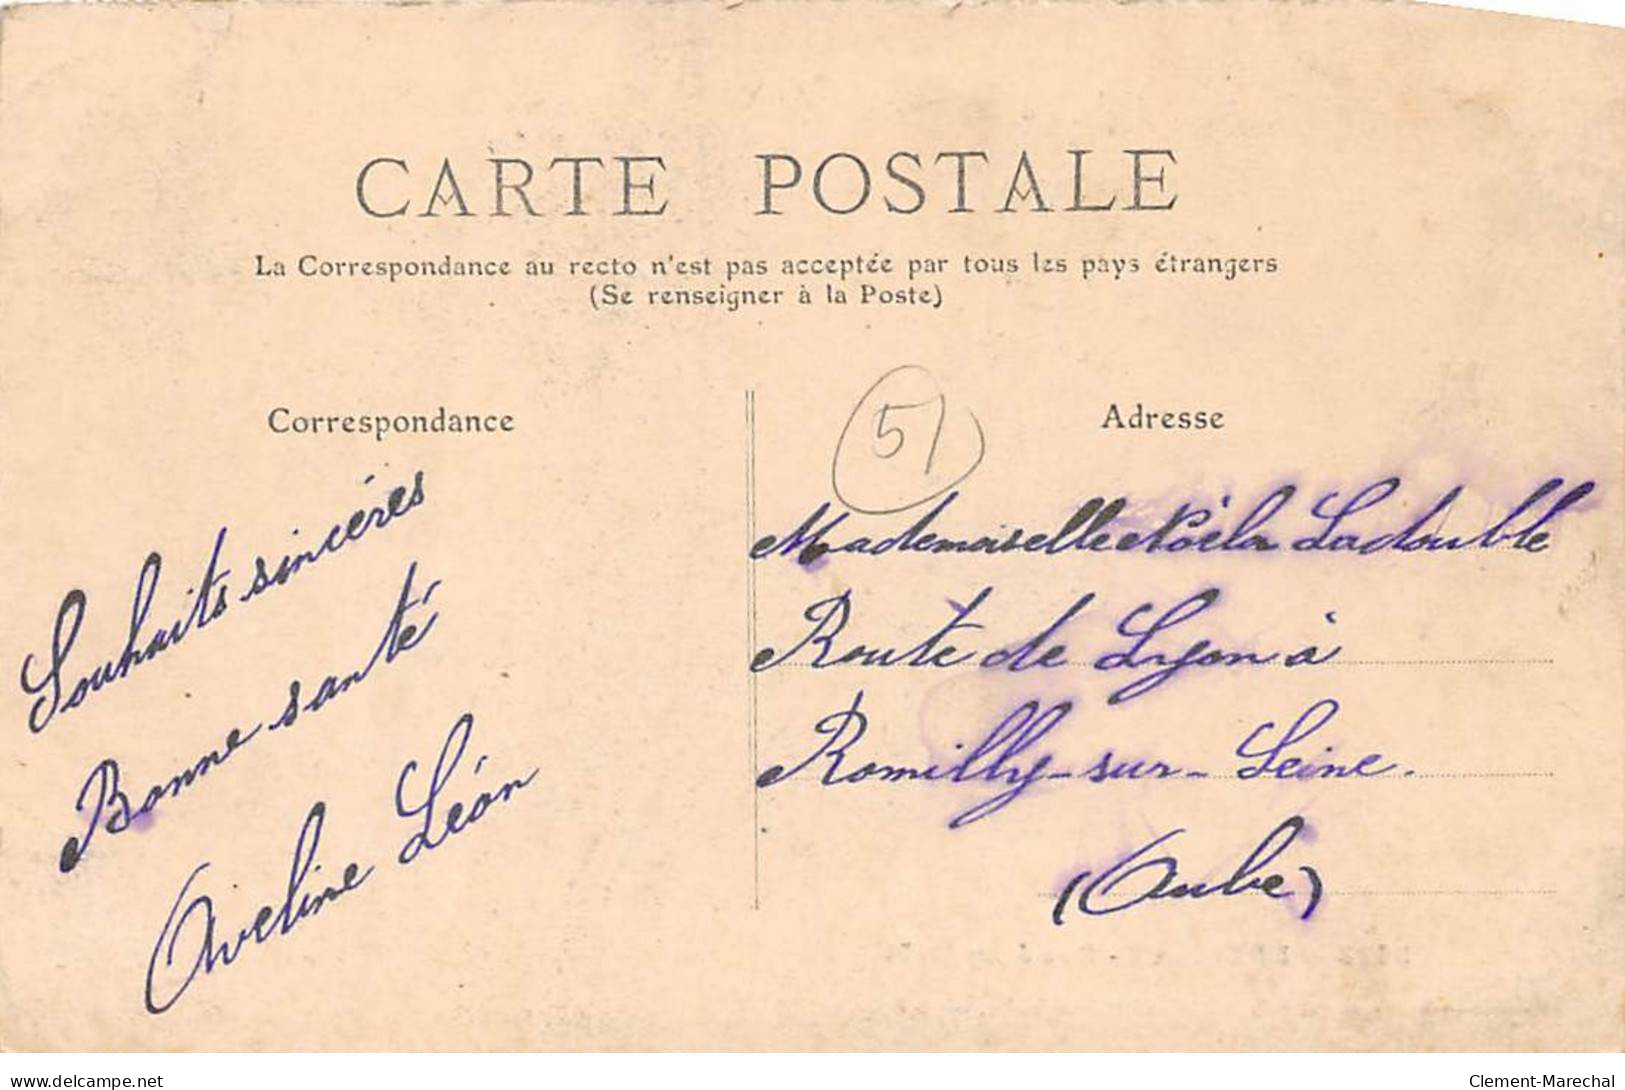 CARTE POSTALE
La Correspondance au recto n'est pas acceptée par tous les pays étrangers
(Se renseigner à la Poste)
Correspondance
Souhaits sincéres
Bonne santé
Aveline Léon
51
Adresse
Mademoiselle Noëla Ladouble
Route de Lyon à
Romilly-sur-Seine.
(Aube)
delcampe.net
Clement-Marechal